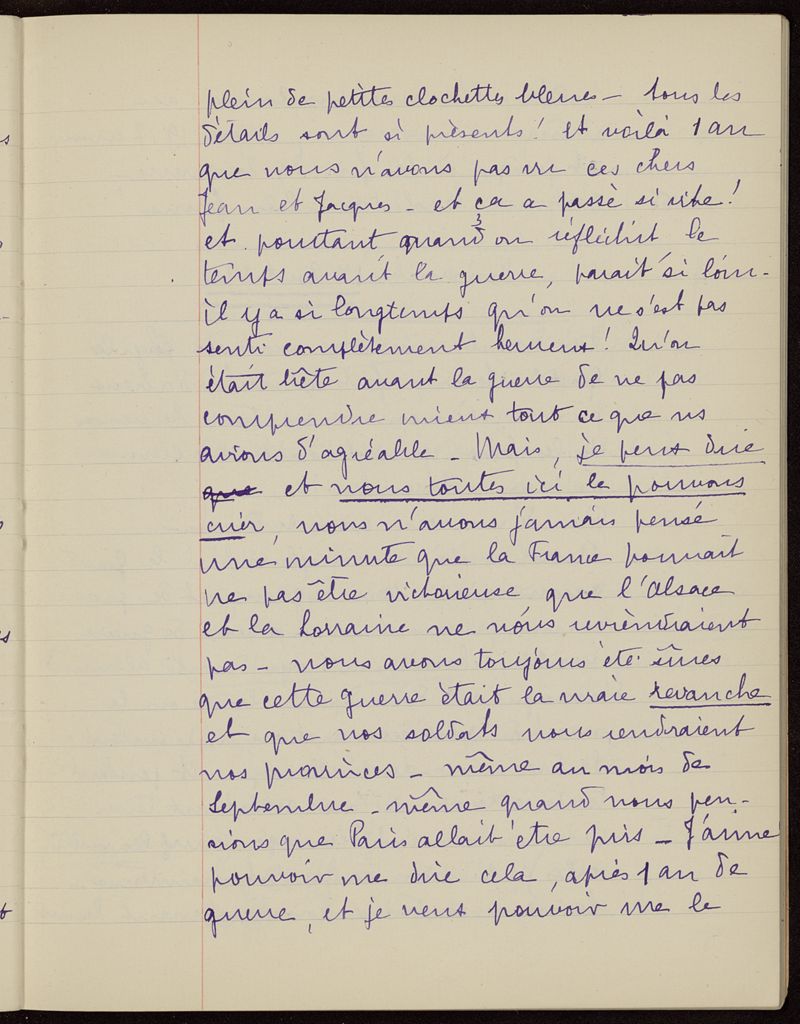 plein de petites clochettes bleues – tous les
détails sont si présents ! et voilà 1 an
que nous n'avons pas vu ces chers
Jean et Jacques – et ça a passé si vite !
et pourtant quand on réfléchit le
temps avant la guerre, parait si loin –
il y a si longtemps qu'on ne s'est pas
senti complètement heureux ! Qu'on
était bête avant la guerre de ne pas
comprendre mieux tout ce que ns
avions d'agréable – Mais, je peux dire
que et nous toutes ici le pouvons
crier, nous n'avons jamais pensé
une minute que la France pourrait
ne pas être victorieuse que l'Alsace
et la Lorraine ne nous reviendraient
pas – nous avons toujours été sûres
que cette guerre était la vraie revanche
et que nos soldats nous rendraient
nos provinces – même au mois de
Septembre – même quand nous pen-
sions que Paris allait être pris – J'aime
pouvoir me dire cela, après 1 an de
guerre, et je veux pouvoir me le